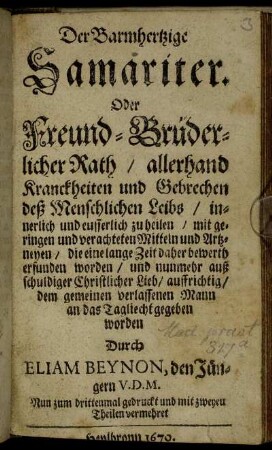 3
Der Barmhertzige
Samariter.
Oder
Freund-Brüder-
licher Rath / allerhand
Kranckheiten und Gebrechen
deß Menschlichen Leibs / in-
nerlich und eusserlich zu heilen / mit ge-
ringen und verachteten Mitteln und Artz-
neyen / die eine lange Zeit daher bewerth
erfunden worden / und nunmehr auß
schuldiger Christlicher Lieb / auffrichtig /
dem gemeinen verlassenen Mann
an das Tagliecht gegeben
worden
Durch
ELIAM BEYNON, den Jün-
gern V.D.M.
Nun zum drittenmal gedruckt und mit zweyen
Theilen vermehret
Heylbronn 1670.